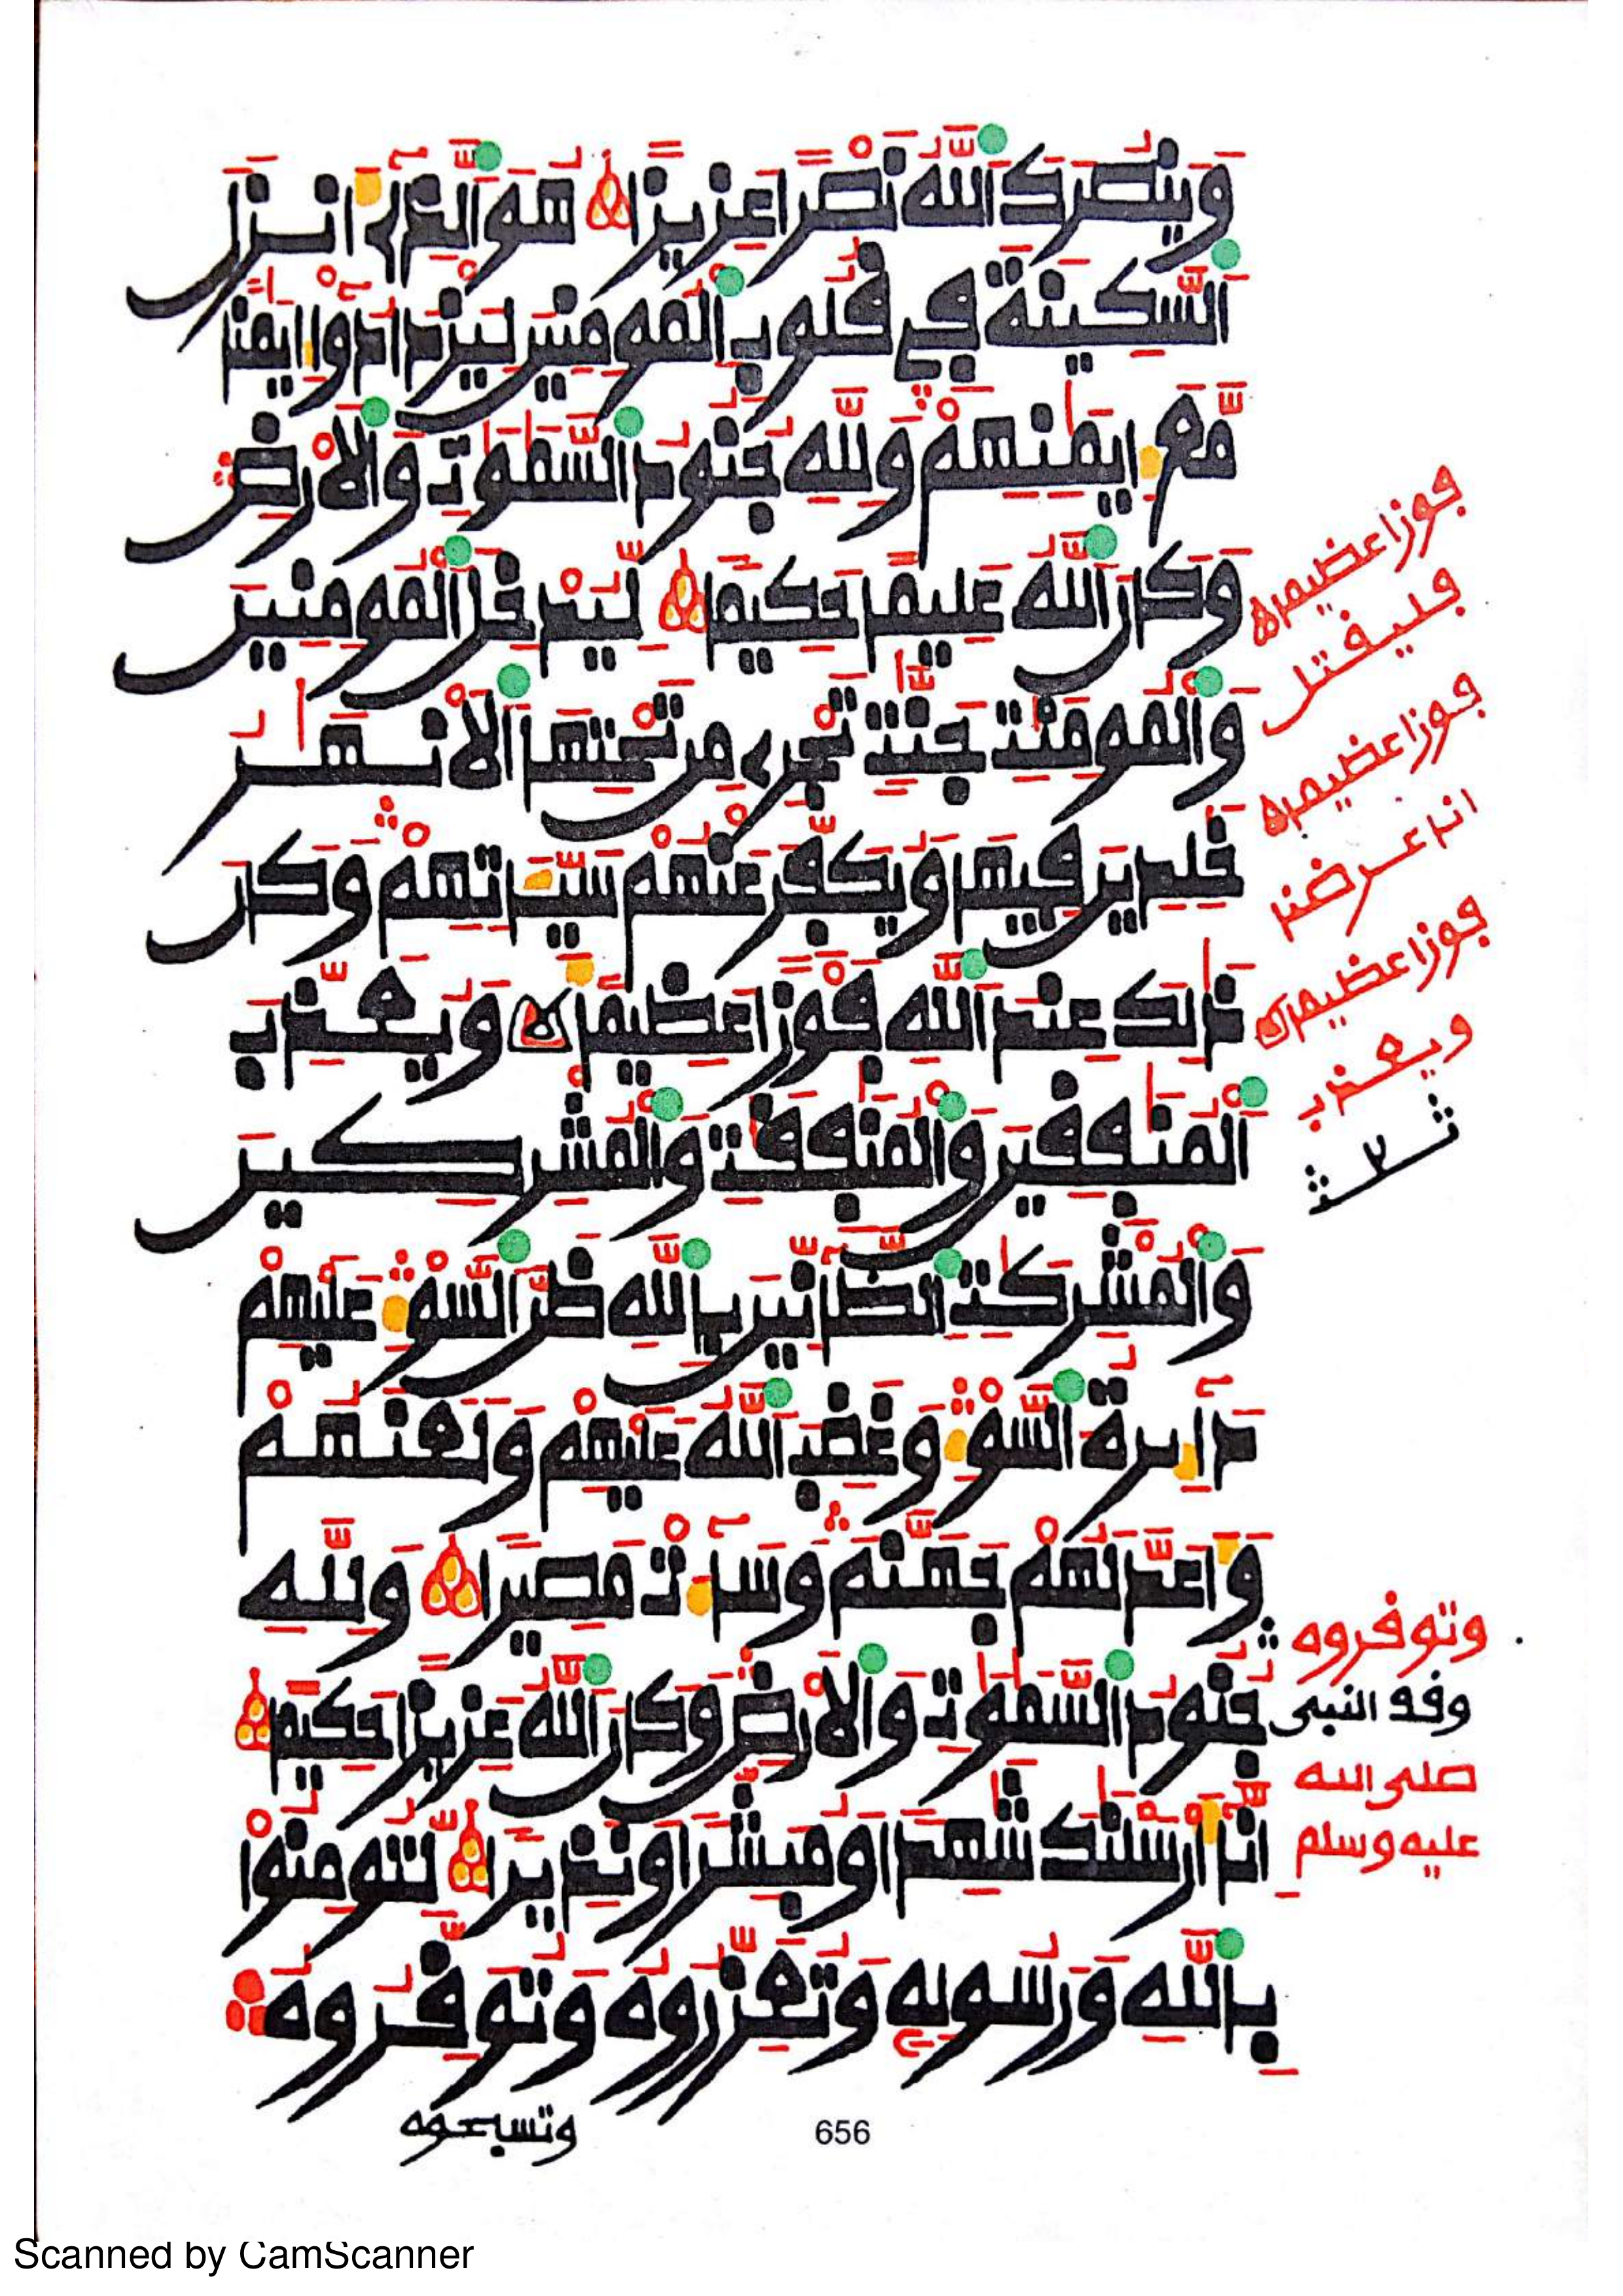 وَيَنصُرَكَ اَللَّهُ نَصْراً عَزِيزاً هُوَ اَلذِےٓ أَنزَلَ
اَلسَّكِينَةَ فِے قُلُوبِ اِلْمُومِنِينَ لِيَزْدَادُوٓاْ إِيمَٰناً
مَّعَ إِيمَٰنِهِمْ وَلِلهِ جُنُودُ اُلسَّمَٰوَٰتِ وَالَارْضِ
وَكَانَ اَللَّهُ عَلِيماً حَكِيماً لِّيُدْخِلَ اَلْمُومِنِينَ
وَالْمُومِنَٰتِ جَنَّٰتٖ تَجْرِے مِن تَحْتِهَا اَلَانْهَٰرُ
خَٰلِدِينَ فِيهَا وَيُكَفِّرَ عَنْهُمْ سَيِّـَٔاتِهِمْ وَكَانَ
ذَٰلِكَ عِندَ اَللَّهِ فَوْزاً عَظِيماً وَيُعَذِّبَ
اَلْمُنَٰفِقِينَ وَالْمُنَٰفِقَٰتِ وَالْمُشْرِكِينَ
وَالْمُشْرِكَٰتِ اِلظَّآنِّينَ بِاللَّهِ ظَنَّ اَلسَّوْءِ عَلَيْهِمْ
دَآئِرَةُ اُلسَّوْءِ وَغَضِبَ اَللَّهُ عَلَيْهِمْ وَلَعَنَهُمْ
وَأَعَدَّ لَهُمْ جَهَنَّمَ وَسَآءَتْ مَصِيراً وَلِلهِ
جُنُودُ اُلسَّمَٰوَٰتِ وَالَارْضِ وَكَانَ اَللَّهُ عَزِيزاً حَكِيماً
إِنَّآ أَرْسَلْنَٰكَ شَٰهِداً وَمُبَشِّراً وَنَذِيراً لِّتُومِنُواْ
بِاللَّهِ وَرَسُولِهِۦ وَتُعَزِّرُوهُ وَتُوَقِّرُوهُ
وتسبحوه
656
فوزا عظيما
فليقتل
فوزا عظيما
انا عرضنا
فوزا عظيما
ويعذب
وتوقروه
وقف النبي
صلى الله
عليه وسلم
Scanned by CamScanner